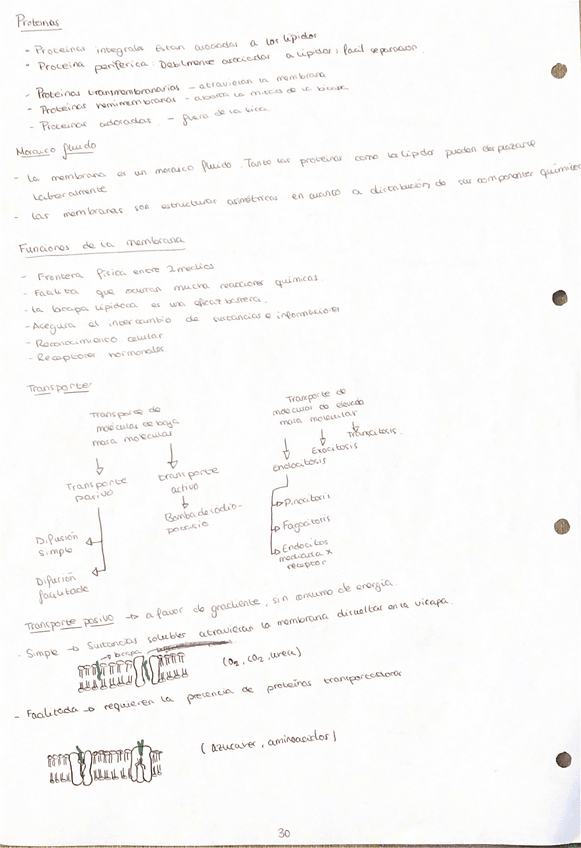 Proteinas
- Proteinas integrales Estan asociadas a los lipidos
- Proteina periferica: Debilmente asociadas a lipidos, facil separacion.
- Proteinas transmembranarias - atraviesan la membrana
- Proteinas hemimembranas - abarca la mitad de la bicapa
- Proteinas adosadas - fuera de la bica
Mosaico fluido
- La membrana es un mosaico fluido. Tanto las proteinas como los lipidos pueden desplazarse
lateralmente
- Las membranas son estructuras asimétricas en cuanto a distribución de sus componentes quimicos
Funciones de la membrana
- Frontera fisica entre 2 medios
- Facilita que ocurran mucha reacciones quimicas.
- La bicapa lipidica es una eficaz barrera.
- Asegura el intercambio de sustancias e informaciones
- Reconocimiento celular
- Receptores hormonales
Transporte
Transporte de
moleculas de baja
masa molecular
Transporte
pasivo
Difusión
simple
Difusión
facilitada
transporte
activo
Bomba de sodio-
potasio
Transporte de
moleculas de elevada
masa molecular
Endocitosis
Exocitosis
Transcitosis.
Pinocitosis
Fagocitosis
Endocitos
mediada x
receptor
Transporte pasivo → a favor de gradiente, sin consumo de energia.
- Simple → Sustancias solubles atraviesan la membrana disueltas en la bicapa.
→ bicapa
(O2, CO2, urea)
- Facilitada → requieren la presencia de proteinas transportadoras
(azucares, aminoacidos)
30